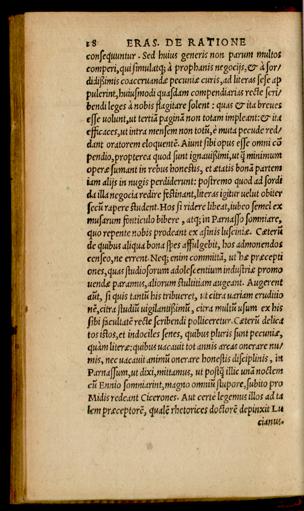 18 ERAS. DE RATIONE
consequuntur. Sed huius generis non parum multos
comperi, qui simulatq; à prophanis negocijs, & à sor/
didißimis coaceruandæ pecuniæ curis, ad literas sese ap
pulerint, huiusmodi quasdam compendiarias recte scri/
bendi leges à nobis flagitare solent: quas & ita breues
esse uolunt, ut tertiā paginā non totam impleant: & ita
efficaces, ut intra mensem non totū, è muta pecude red/
dant oratorem eloquentē. Aiunt sibi opus esse omni cō
pendio, propterea quod sunt ignauißimi, ut q̃ minimum
operæ sumant in rebus honestis, et ætatis bonā partem
iam alijs in nugis perdiderunt: postremo quod ad sordi
da illa negocia redire festinant, literas igitur uelut obiter
secū rapere student. Hos si ridere libeat, iubeo semel ex
musarum fonticulo bibere, atq; in Parnasso somniare,
quo repente nobis prodeant ex asinis lusciniæ. Cæterū
de quibus aliqua bona spes affulgebit, hos admonendos
censeo, ne errent. Neq; enim committā, ut hæ præcepti
ones, quas studiosorum adolescentium industriæ promo
uendæ paramus, aliorum stultitiam augeant. Augerent
aūt, si quis tantū his tribueret, ut citra uariam eruditio
nē, citra studiū uigilantißimū, citra multū usum ex his
sibi facultatē recte scribendi polliceretur. Cæterū delica
tos istos, et indociles senes, quibus pluris sunt pecuniæ,
quàm literæ: quibus uacauit tot annis arcas onerare nu/
mis, nec uacauit animū onerare honestis disciplinis, in
Parnassum, ut dixi, mittamus, ut postq̃ illic unā noctem
cū Ennio somniarint, magno omniū stupore, subito pro
Midis redeant Cicerones. Aut certe legemus illos ad ta
lem præceptorē, qualē rhetorices doctorē depinxit Lu
cianus.